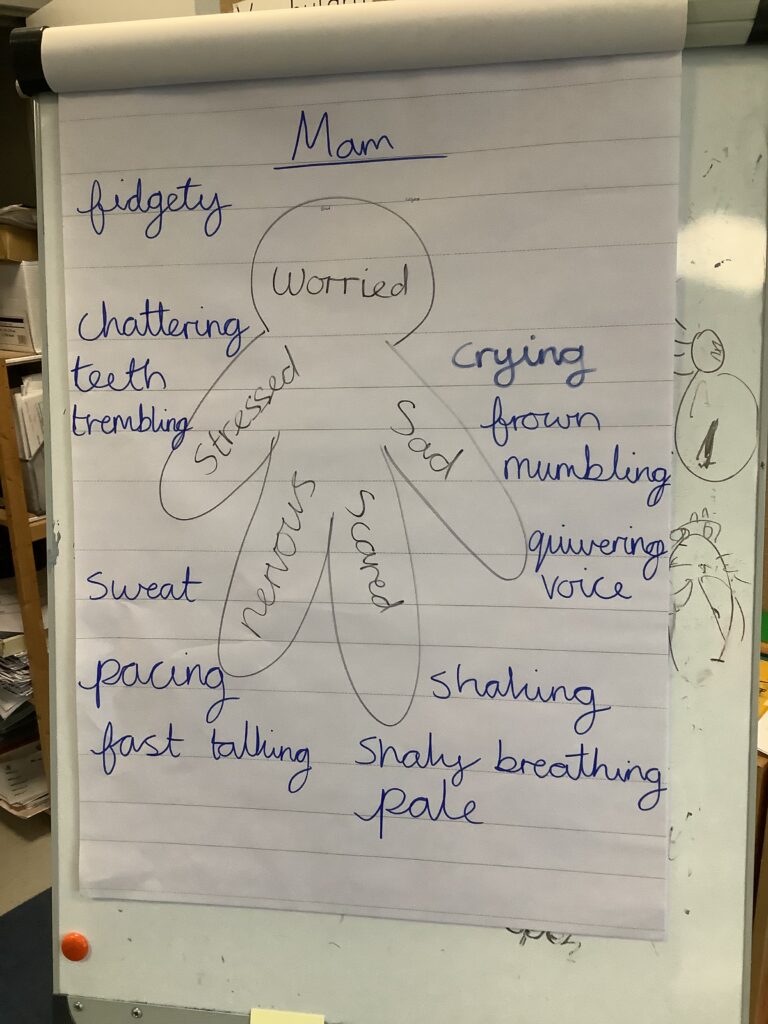 Mam
fidgety
Worried
chattering
teeth
trembling
Stressed
Sad
crying
frown
mumbling
quivering
voice
nervous
scared
sweat
pacing
fast talking
shaking
Shaky breathing
pale
1